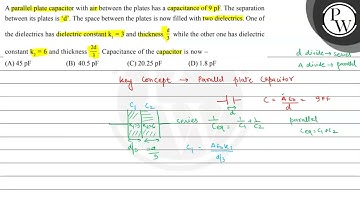 A parallel plate capacitor with air between the plates has a capacitance of 9 pF. The separation
between its plates is 'd'. The space between the plates is now filled with two dielectrics. One of
the dielectrics has dielectric constant k₁ = 3 and thickness d/3 while the other one has dielectric
constant k₂ = 6 and thickness 2d/3. Capacitance of the capacitor is now –
(A) 45 pF (B) 40.5 pF (C) 20.25 pF (D) 1.8 pF
PW
d divide → series
A divide → parallel
Key Concept → Parallel plate Capacitor
C = Aε₀/d = 9PF
d
C₁ C₂
series 1/Ceq = 1/C₁ + 1/C₂
parallel
Ceq = C₁+C₂
d/3 2d/3
C₁ = Aε₀k₁/d/3